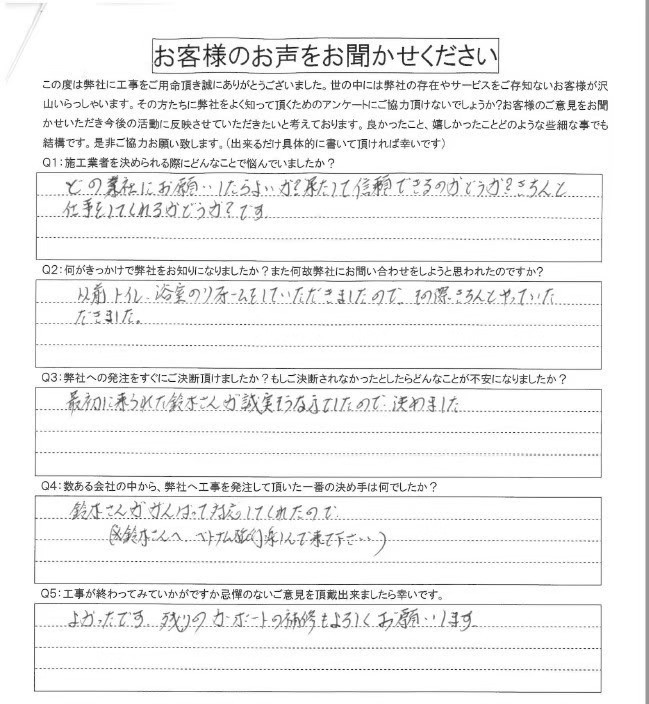 お客様のお声をお聞かせください
この度は弊社に工事をご用命頂き誠にありがとうございました。世の中には弊社の存在やサービスをご存知ないお客様が沢
山いらっしゃいます。その方たちに弊社をよく知って頂くためのアンケートにご協力頂けないでしょうか?お客様のご意見をお聞
かせいただき今後の活動に反映させていただきたいと考えております。良かったこと、嬉しかったことどのような些細な事でも
結構です。是非ご協力お願い致します。(出来るだけ具体的に書いて頂ければ幸いです)
Q1:施工業者を決められる際にどんなことで悩んでいましたか?
どの業社にお願いしたらよいか?果たして信頼できるのかどうか?きちんと
仕事をしてくれるかどうか?です
Q2:何がきっかけで弊社をお知りになりましたか?また何故弊社にお問い合わせをしようと思われたのですか?
以前トイレ、浴室のリフォームをしていただきましたので、その際きちんとやっていた
だきました。
Q3:弊社への発注をすぐにご決断頂けましたか?もしご決断されなかったとしたらどんなことが不安になりましたか?
最初に来られた鈴木さんが誠実そうな方でしたので、決めました
Q4:数ある会社の中から、弊社へ工事を発注して頂いた一番の決め手は何でしたか?
鈴木さんががんばって対応してくれたので
(※鈴木さんへ、ベトナム旅行楽しんで来て下さい)
Q5:工事が終わってみていかがですか忌憚のないご意見を頂戴出来ましたら幸いです。
よかったです。残りのカーポートの補修もよろしくお願いします